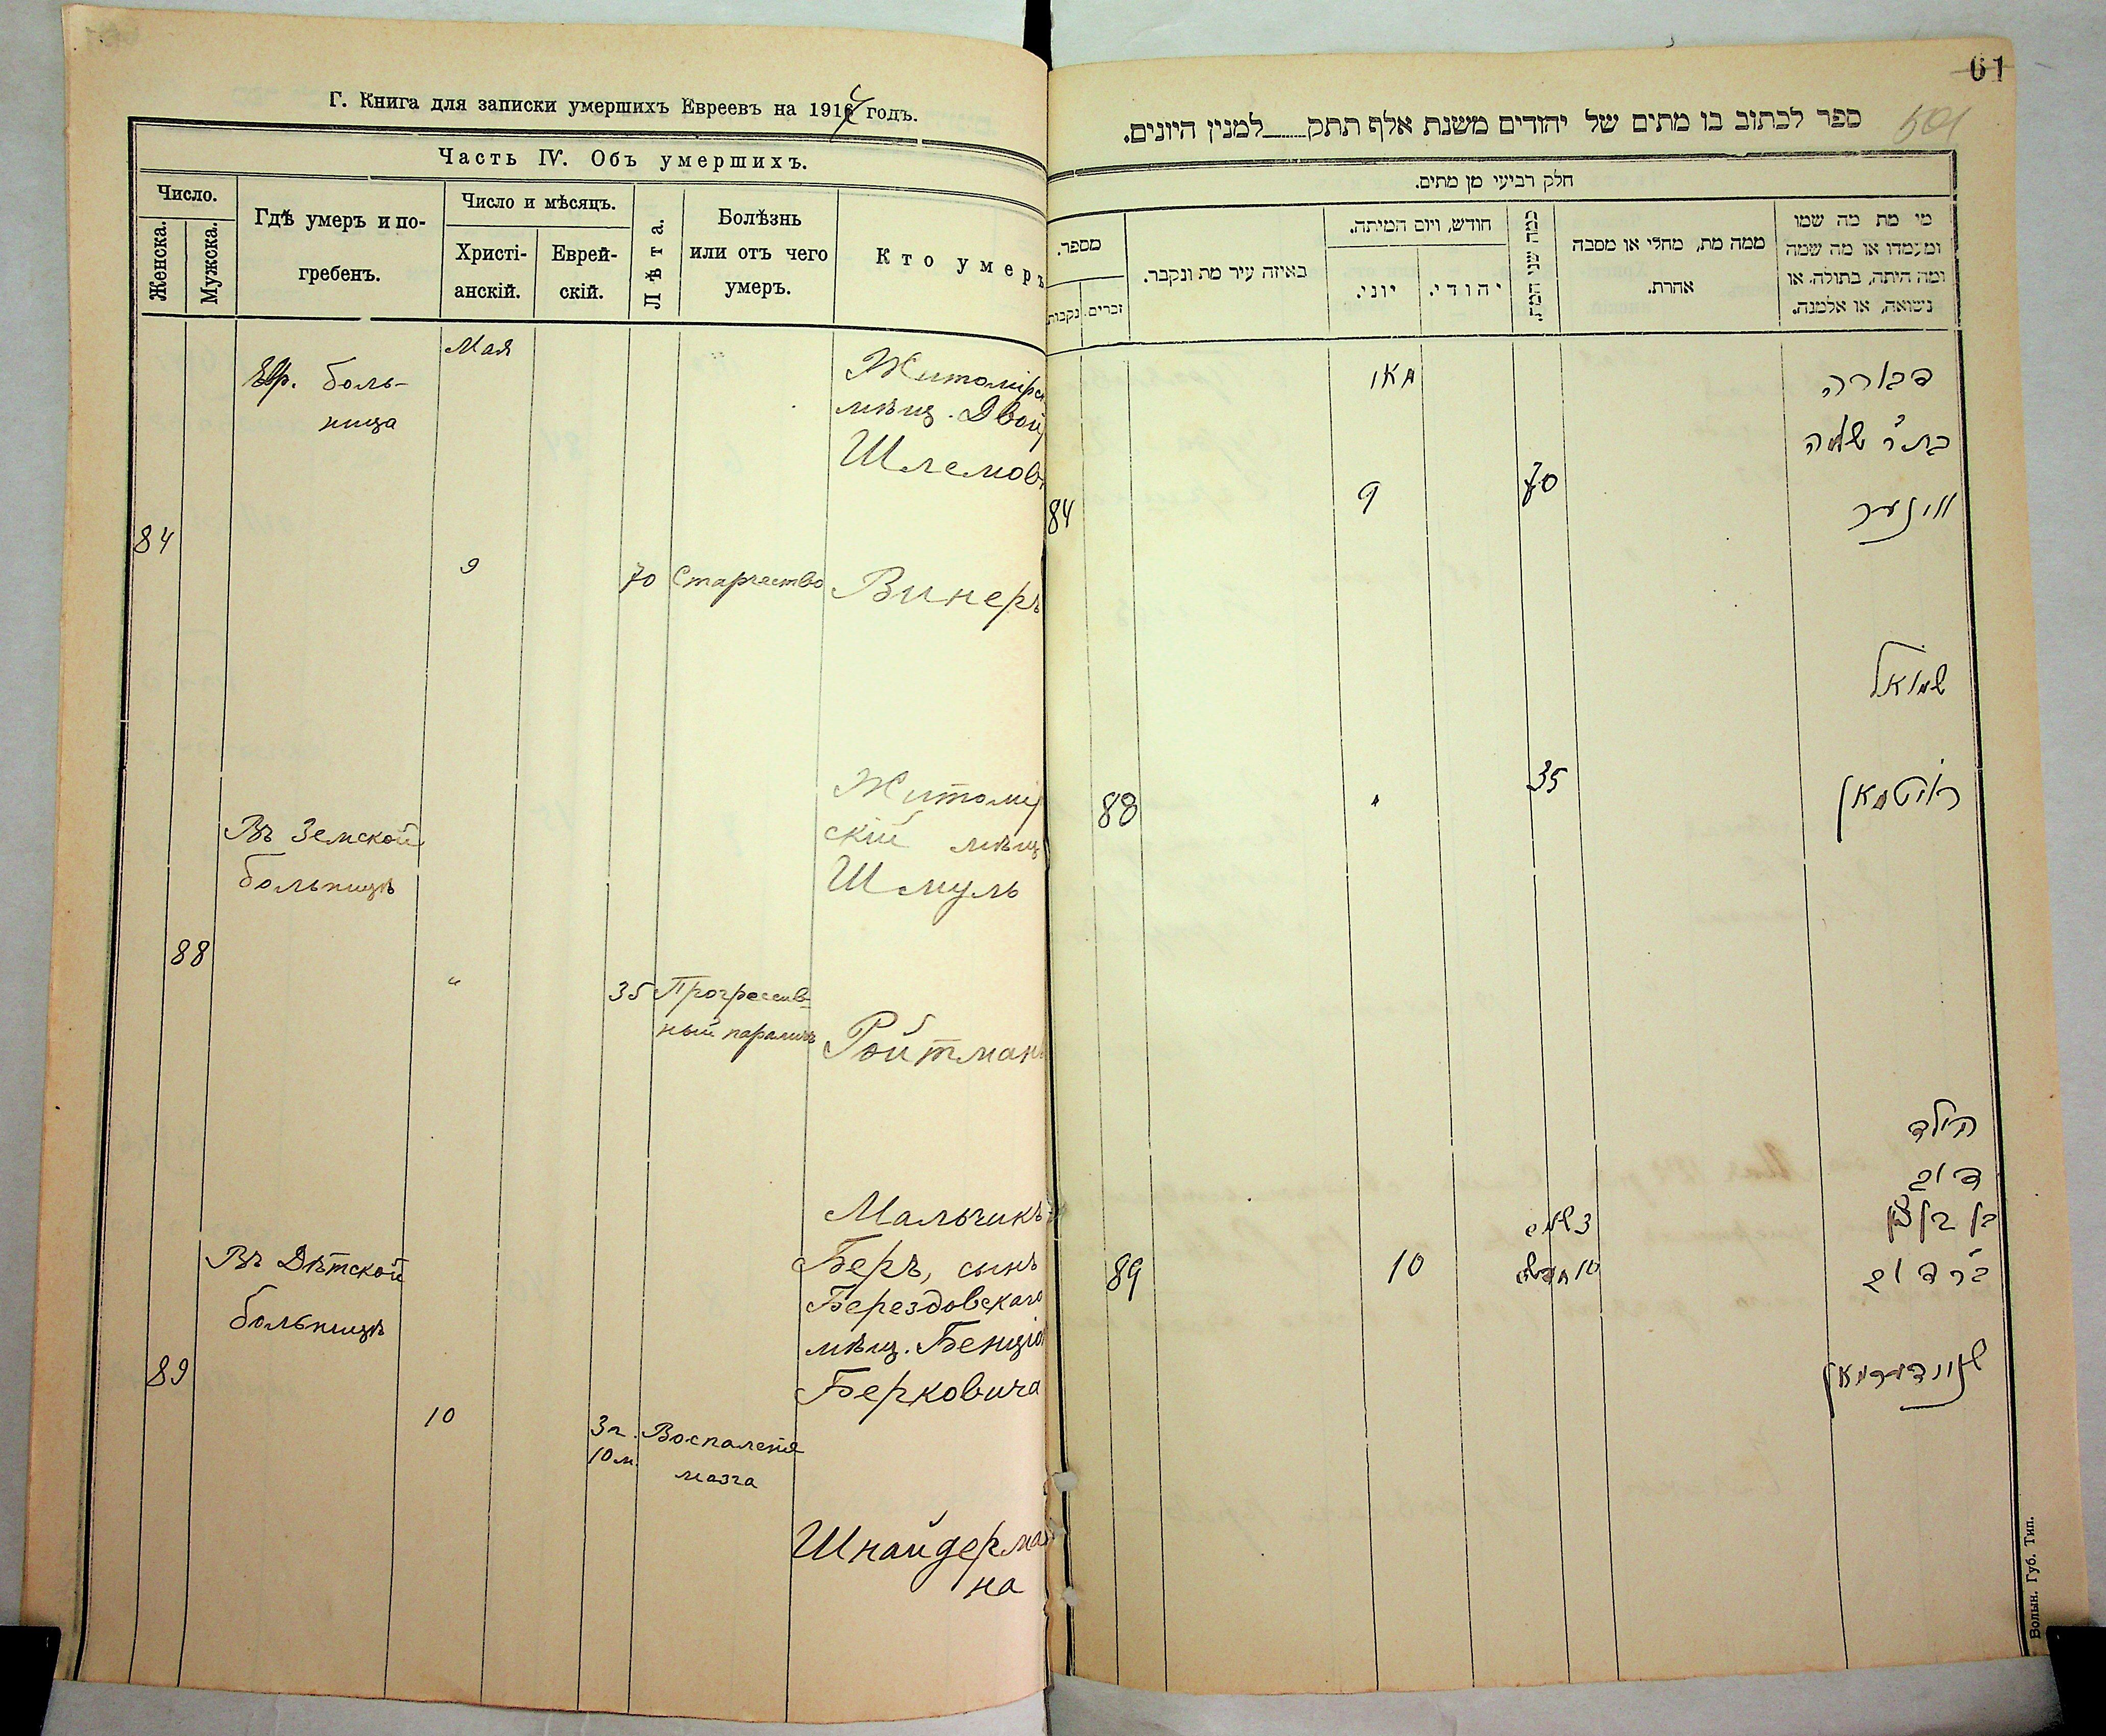 Г. Книга для записки умершихъ Евреевъ на 1914 годъ.
Часть IV. Объ умершихъ.
Число.
Женска.
Мужска.
Гдѣ умеръ и по-
гребенъ.
Число и мѣсяцъ.
Христі-
анскій.
Еврей-
скій.
Лѣта.
Болѣзнь
или отъ чего
умеръ.
Кто умеръ
Мая
Евр. боль-
ница
84
9
70
Старчество
Житомірс
мѣщ. Двой
Шлемов
Винеръ
Въ Земской
больницѣ
88
"
35
Прогрессив-
ный параличъ
Житомір
скій мѣщ
Шмуль
Ройтман
Въ Дѣтской
больницѣ
89
10
3 г.
10 м.
Воспаленіе
мозга
Мальчикъ
Беръ, сынъ
Берездовскаго
мѣщ. Бенціо
Берковича
Шнайдерма
на
61
ספר לכתוב בו מתים של יהודים משנת אלף תתק למנין היונים.
חלק רביעי מן מתים.
מספר.
נקבות
זכרים.
באיזה עיר מת ונקבר.
חודש, ויום המיתה.
יוני.
יהודי.
כמה שני המת.
ממה מת, מחלי או מסבה
אחרת.
מי מת מה שמו
ומעמדו או מה שמה
ומה היתה, בתולה או
נשואה, או אלמנה.
מאי
84
9
70
דבורה
בת ר' שלמה
ווינער
88
"
35
שמואל
רויטמאן
89
10
3 שנים
10 חדשים
הילד
דוב
בן בן ציון
בר דוב
שניידערמאן
Волын. Губ. Тип.